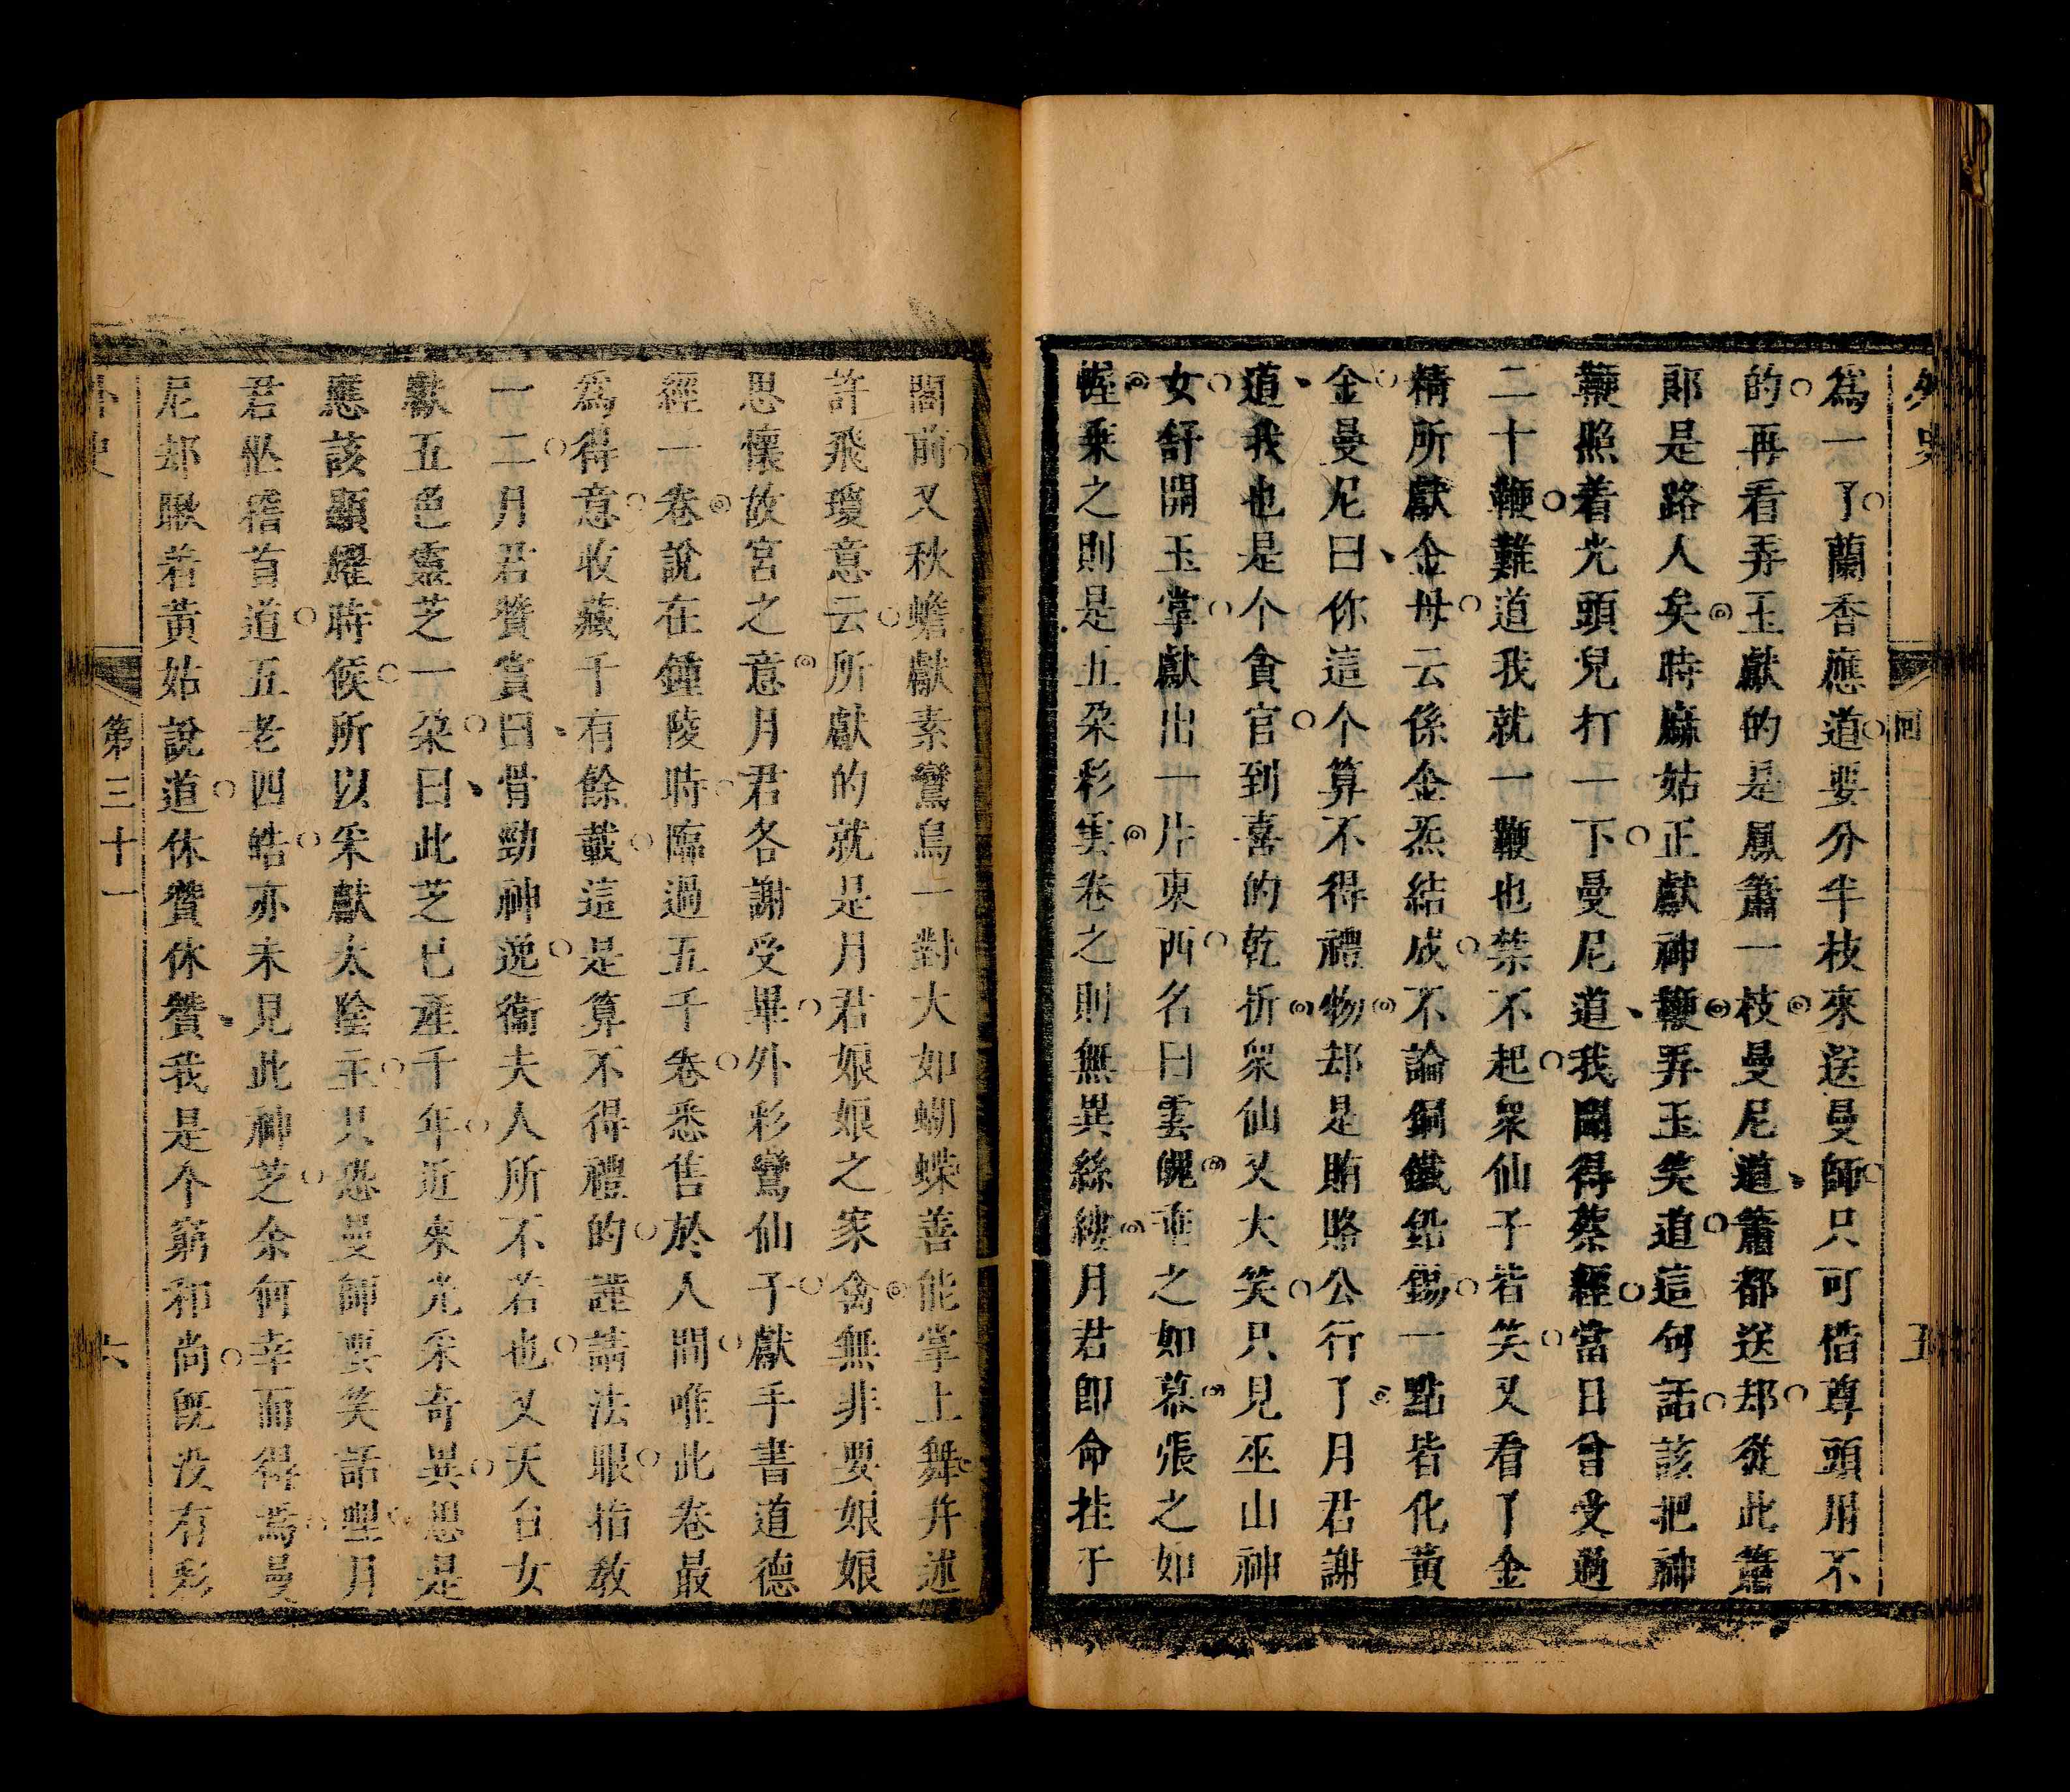 外史
回
五
為一了蘭香應道要分半枝來送曼師只可借尊頭用不
的再看弄玉獻的是鳳簫一枝曼尼道簫都送却從此蕭
郎是路人矣時麻姑正獻神鞭弄玉笑道這句話該把神
鞭照着光頭兒打一下曼尼道我聞得蔡經當日曾受過
二十鞭難道我就一鞭也禁不起衆仙子皆笑又看了金
精所獻金母云係金炁結成不論銅鐵鉛錫一點皆化黃
金曼尼曰你這个算不得禮物却是賄賂公行了月君謝
道我也是个貪官到喜的乾折衆仙又大笑只見巫山神
女舒開玉掌獻出一片東西名曰雲幄垂之如幕張之如
幄乘之則是五朶彩雲卷之則無異絲縷月君卽命挂于
閣前又秋蟾獻素鸞鳥一對大如蝴蝶善能掌上舞幷述
許飛瓊意云所獻的就是月君娘娘之家禽無非要娘娘
思懷故宮之意月君各謝受畢外彩鸞仙子獻手書道德
經一卷說在鍾陵時臨過五千卷悉售於人間唯此卷最
為得意收藏千有餘載這是算不得禮的謹請法眼指教
一二月君贊賞曰骨勁神逸衞夫人所不若也又天台女
獻五色靈芝一朶曰此芝已產千年近來光采奇異思是
應該顯耀時候所以采獻太陰主只恐曼師要笑話哩月
君坐稽首道五老四皓亦未見此神芝余何幸而得焉曼
尼却瞅着黃姑說道休贊休贊我是个窮和尚旣没有彩
外史
第三十一
六